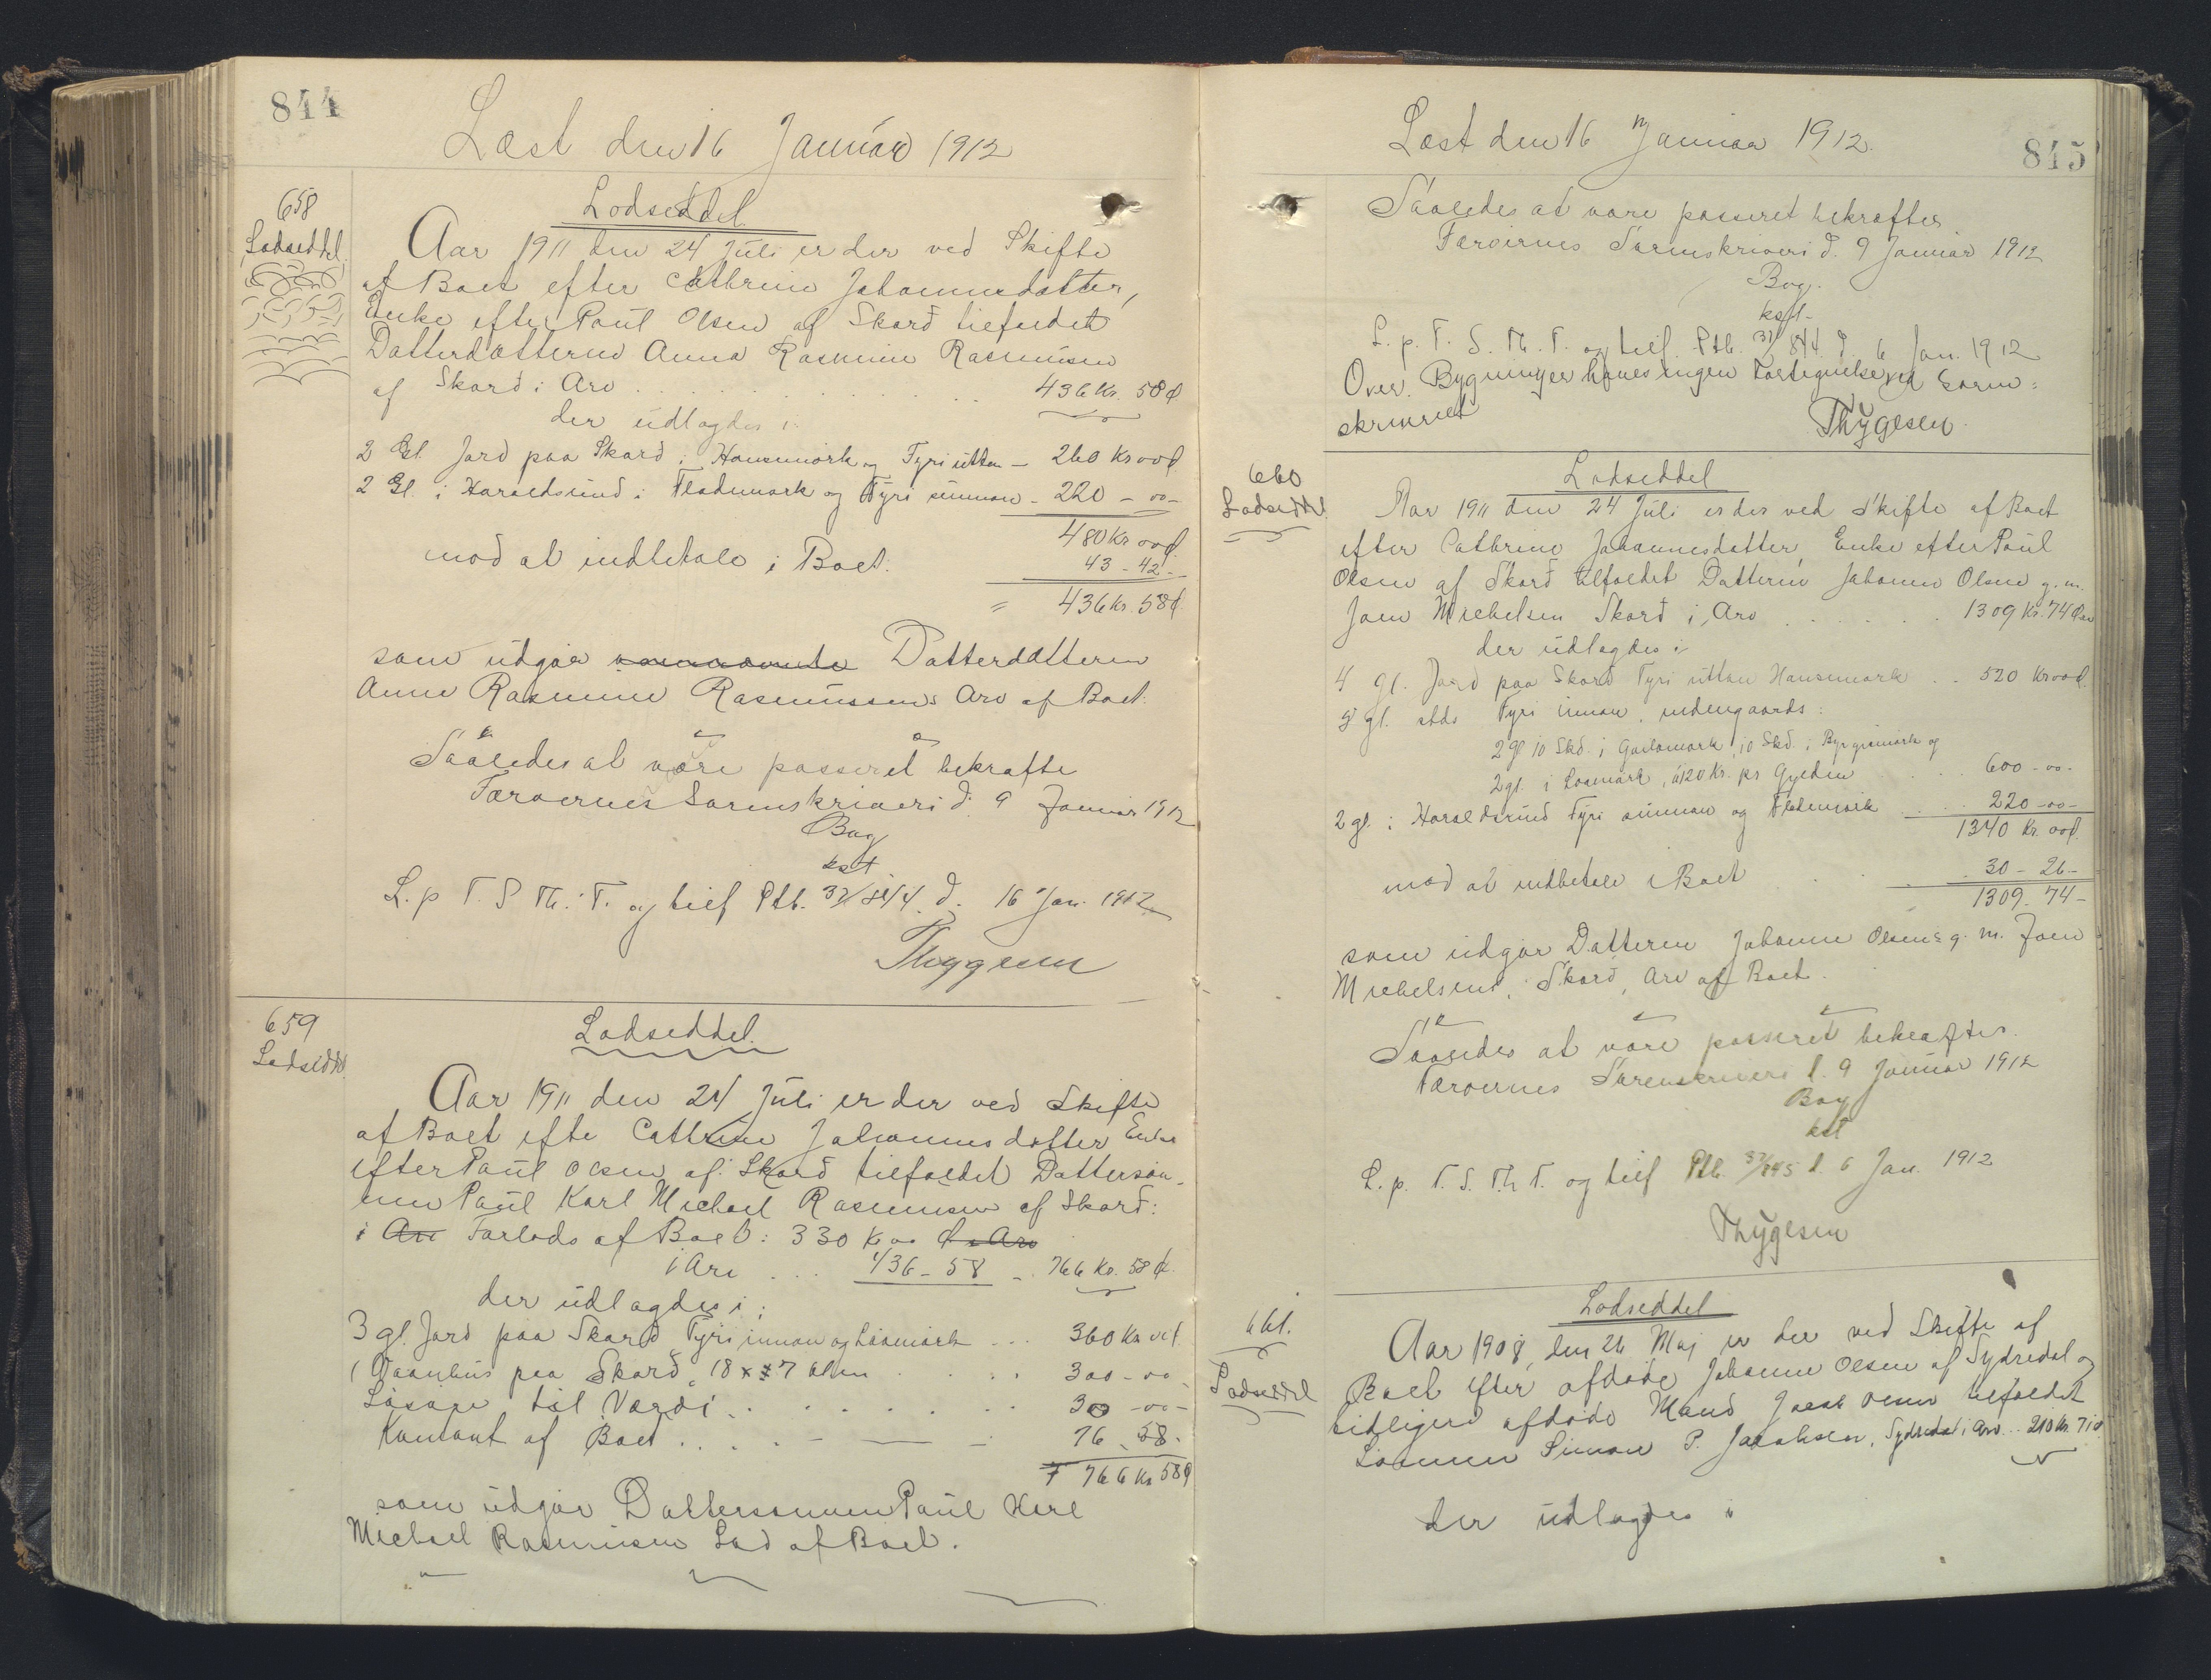 844
Læst den 16 Januar 1912
658
Lodseddel.
Lodseddel.
Aar 1911 den 24 Juli er der ved Skifte
af Boet efter Cathrine Johannesdatter,
Enke efter Poul Olsen af Skard tilfaldet
Datterdatteren Anna Rasmine Rasmussen
af Skard i Arv . . . . 436 Kr. 58 Ø.
der udlagdes i
2 Gl. Jord paa Skard i Hansemørk og Fyri uttan — 260 Kr 00 Ø.
2 Gl. i Haraldsund i Fladumørk og Fyri sunnan - 220 - 00 -
480 Kr 00 Ø.
mod at indbetale i Boet: 43 - 42 -
= 436 Kr. 58 Ø.
som udgør Datterdatteren
Anne Rasmine Rasmussens Arv af Boet.
Saaledes at være passeret bekræfte
Færøernes Sorenskriveri d. 9 Januar 1912
Bag
kst
L. p. T. S. Th. T. og tilf Ptb. 37/844 d. 16 Jan. 1912
Thygesen
659
Lodseddel.
Lodseddel.
Aar 1911 den 24 Juli er der ved Skifte
af Boet efte Cathrine Johannesdatter Enke
efter Poul Olsen af Skard tilfaldet Dattersøn-
nen Poul Karl Michael Rasmussen af Skard:
i Arv Forlods af Boet: 330 Kr 00 Ø i Arv
i Arv . . . 436 - 58 - 766 Kr. 58 Ø.
der udlagdes i:
3 gl. Jord paa Skard Fyri innan og Lôamørk . . . 360 Kr 00 Ø.
1 Vaanhus paa Skard, 18 x 7 Alen . . . . 300 - 00
Løsøre til Værdi . . . . . . 30 - 00 -
Kontant af Boet . . . . - — - 76 - 58 -
766 Kr 58 Ø
som udgør Dattersønnen Poul Karl
Michael Rasmussen Lod af Boet.
Læst den 16 Januar 1912.
845
Saaledes at være passeret bekræfter
Færøernes Sorenskriveri d. 9 Januar 1912
Bag.
kst.
L. p. T. S. Th. T. og tilf. Ptb. 37/844 d. 6 Jan. 1912
Over Bygninger haves ingen Fortegnelse ved Soren=
skriveriet
Thygesen.
660
Lodseddel.
Lodseddel
Aar 1911 den 24 Juli er der ved Skifte af Boet
efter Cathrine Johannesdatter, Enke efter Poul
Olsen af Skard tilfaldet Datteren Johanne Olsen g. m.
Joen Michelsen Skard i Arv . . . . . . 1309 Kr. 74 Øre
der udlagdes i
4 gl. Jord paa Skard Fyri uttan Hansemørk . . 520 Kr 00 Ø.
5 gl. stds Fyri innan, indengaards:
2 gl 10 Skd. i Garlamørk, 10 Skd. i Byrgismørk og
2 gl. i Loamørk, á 120 Kr. pr Gylden . . . 600 - 00 -
2 gl. i Haraldsund Fyri sunnan og Fladumørk . . . 220 - 00 -
1340 Kr. 00 Ø.
mod at indbetale i Boet . . . 30 - 26 -
1309. 74 -
som udgør Datteren Johanne Olsens g. m. Joen
Michelsens, Skard, Arv af Boet.
Saaledes at være passeret bekræfter.
Færøernes Sorenskriveri d. 9 Januar 1912
Bag
kst
L. p. T. S. Th. T. og tilf Ptb. 37/845 d. 6 Jan. 1912
Thygesen
661.
Lodseddel
Lodseddel
Aar 1908, den 26 Maj er der ved Skifte af
Boet efter afdøde Johanne Olsen af Sydredal og
tidligere afdøde Mand tilfaldet
Sønnen Simon P. Jacobsen, Sydredal i Arv . . 210 Kr. 71 Ø
der udlagdes i